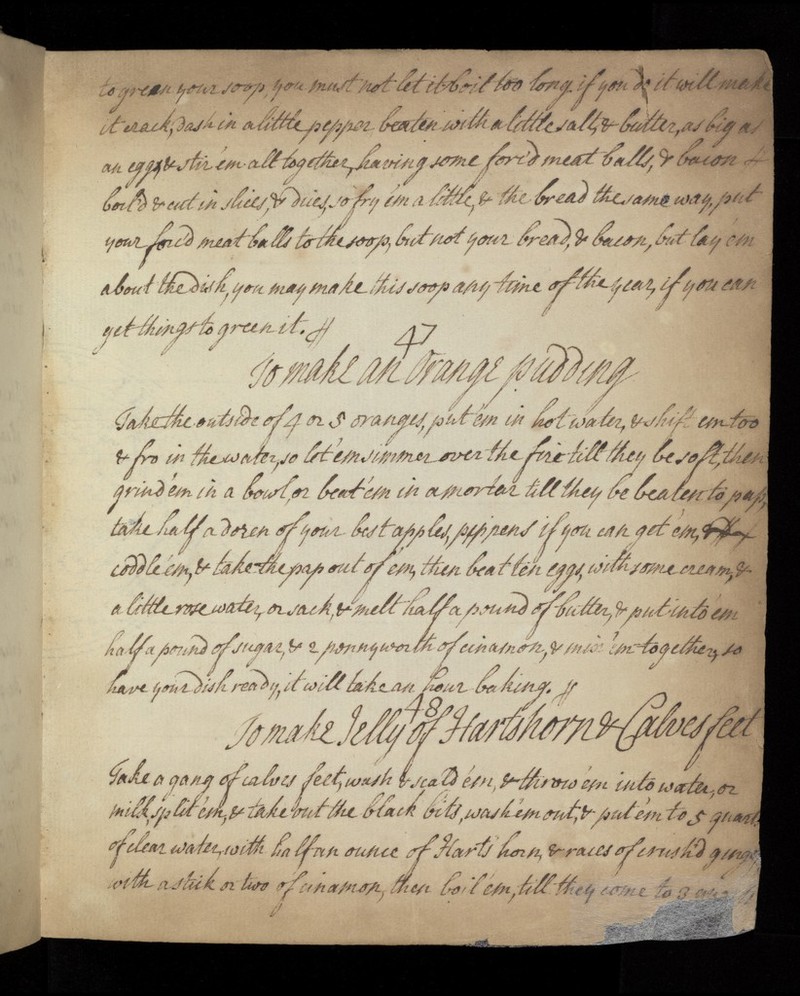 to green your soop, you must not let it boil too long. if you do it will make
it crack, dash in a little pepper beaten with a little salt, & butter, as big as
an egg, & stir 'em all together, having some forc'd meat balls, & bacon
boil'd & cut in slices, & dices, so fry 'em a little, & the bread the same way, put
your forc'd meat balls to the soop, but not your bread, & bacon, but lay 'em
about the dish, you may make this soop any time of the year, if you can
get things to green it.
47
To make an Orange pudding
Take the outside of 4 or 5 oranges, put 'em in hot water, & shift 'em too
& fro in the water, so let 'em simmer over the fire till they be soft, then
grind 'em in a bowl, or beat 'em in a mortar till they be beaten to pap,
take half a dozen of your best apples, pippens if you can get 'em,
coddle 'em, & take the pap out of 'em, then beat ten eggs, with some cream, &
a little rose water, or sack, & melt half a pound of butter, & put into 'em
half a pound of sugar, & 2 pennyworth of cinamon, & mix 'em together, so
have your dish ready, it will take an hour baking.
48
To make Jelly of Hartshorn & Calves feet
Take a gang of calves feet, wash & scald 'em, & throw 'em into water, or
milk, split 'em, & take out the black bits, wash 'em out, & put 'em to 5 quarts
of clear water, with half an ounce of Harts horn, & races of crush'd ginger,
with a stick or two of cinamon, then boil 'em, till they come to 3